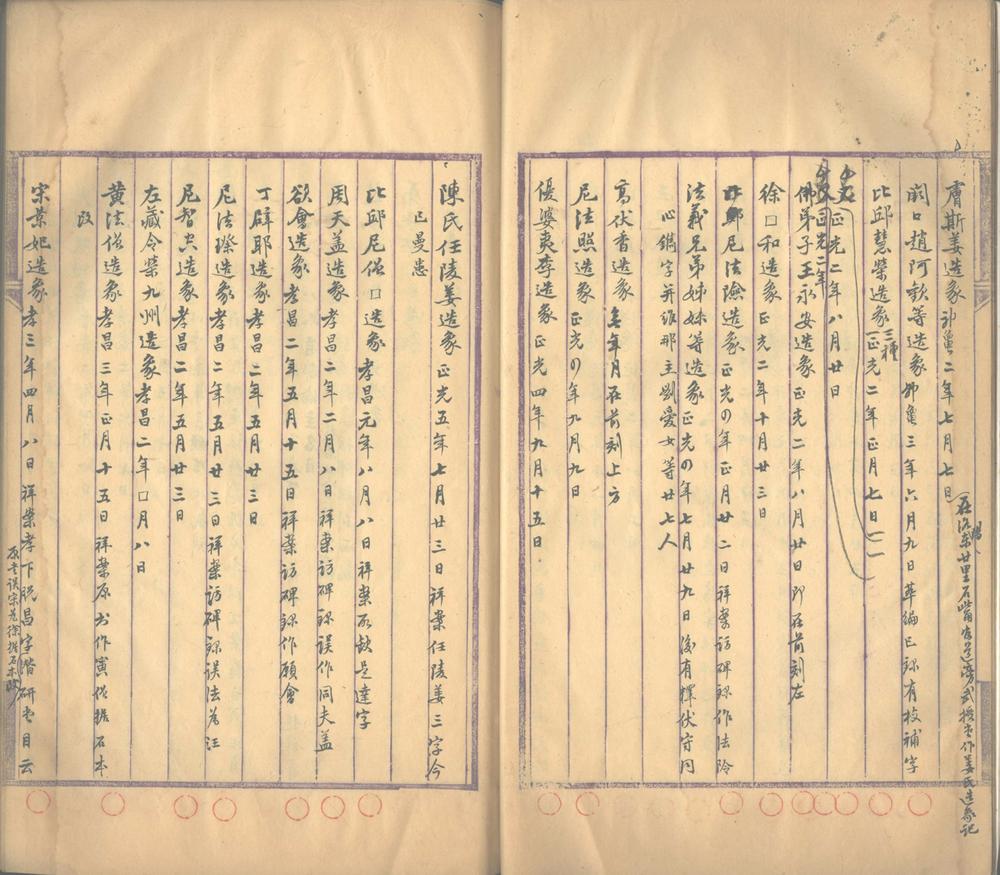 膚斯姜造象神龜二年七月七日
在洛陽東廿里石觜寺道旁武授堂作姜氏造象記
闕口趙阿歡等造象神龜三年六月九日萃編已錄有校補字
比邱慧榮造象三種正光二年正月七日
又正光二年八月廿日
又正光二年
佛弟子王永安造象正光二年八月廿日即在前刻左
徐口和造象正光二年十月廿三日
比邱尼法陰造象正光の年正月廿二日祥案訪碑錄作法陰
法義兄弟姊妹等造象正光の年七月廿九日後有釋伏守同
心鐫字并維那主劉愛女等廿七人
高伏香造象無年月在前刻上方
尼法照造象正光の年九月九日
優婆夷李造象正光四年九月十五日
陳氏任陵姜造象正光五年七月廿三日祥案任陵姜三字今
已曼患
比邱尼僧口造象孝昌元年八月八日祥案所缺是達字
周天蓋造象孝昌二年二月八日祥案訪碑錄誤作同夫蓋
欲會造象孝昌二年五月十五日祥案訪碑錄作願會
丁辟耶造象孝昌二年五月廿三日
尼法際造象孝昌二年五月廿三日祥案訪碑錄誤法為江
尼智空造象孝昌二年五月廿三日
左藏令榮九州造象孝昌二年口月八日
黃法僧造象孝昌三年正月十五日祥案原書作寅僧據石本
改
宋景妃造象孝三年四月八日祥案孝下脫昌字潛研堂目云
原書誤宋為徐據石本改